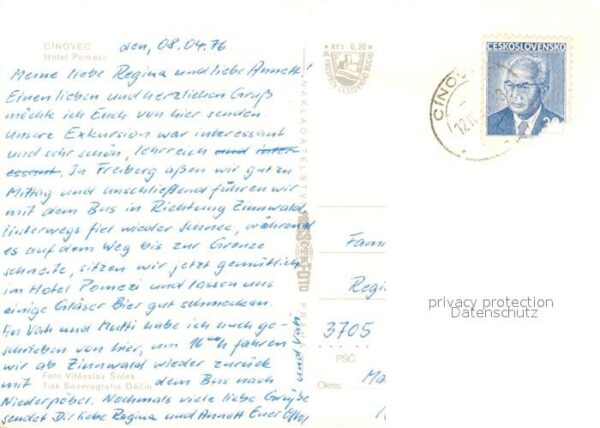 CÍNOVEC
Hotel Pomezí
den, 08.04.76
Meine liebe Regina und liebe Annett!
Einen lieben und herzlichen Gruß
möchte ich Euch von hier senden.
Unsere Exkursion war interessant
und sehr schön, lehrreich und inter-
essant. In Freiberg aßen wir gut zu
Mittag und anschließend führen wir
mit dem Bus in Richtung Zinnwald,
Unterwegs fiel wieder Schnee, während
es auf dem Weg bis zur Grenze
schneite, sitzen wir jetzt gemütlich
im Hotel Pomezi und lassen uns
einige Gläser Bier gut schmecken.
An Vati und Mutti habe ich auch ge-
schrieben von hier, um 16 fahren
wir ab Zinnwald wieder zurück
mit dem Bus nach
Niederpöbel. Nochmals viele liebe Grüße
sendet Dir liebe Regina und Annett Euer
und Vati
Foto Vítězslav Solek
Tisk Severografia Děčín
Kčs 0,20
NAKLADATELSTVÍ
FOTO
ČESKOSLOVENSKO
CÍNOV
Fam
Regi
3705
PSČ
Okres:
Ma
privacy protection
Datenschutz